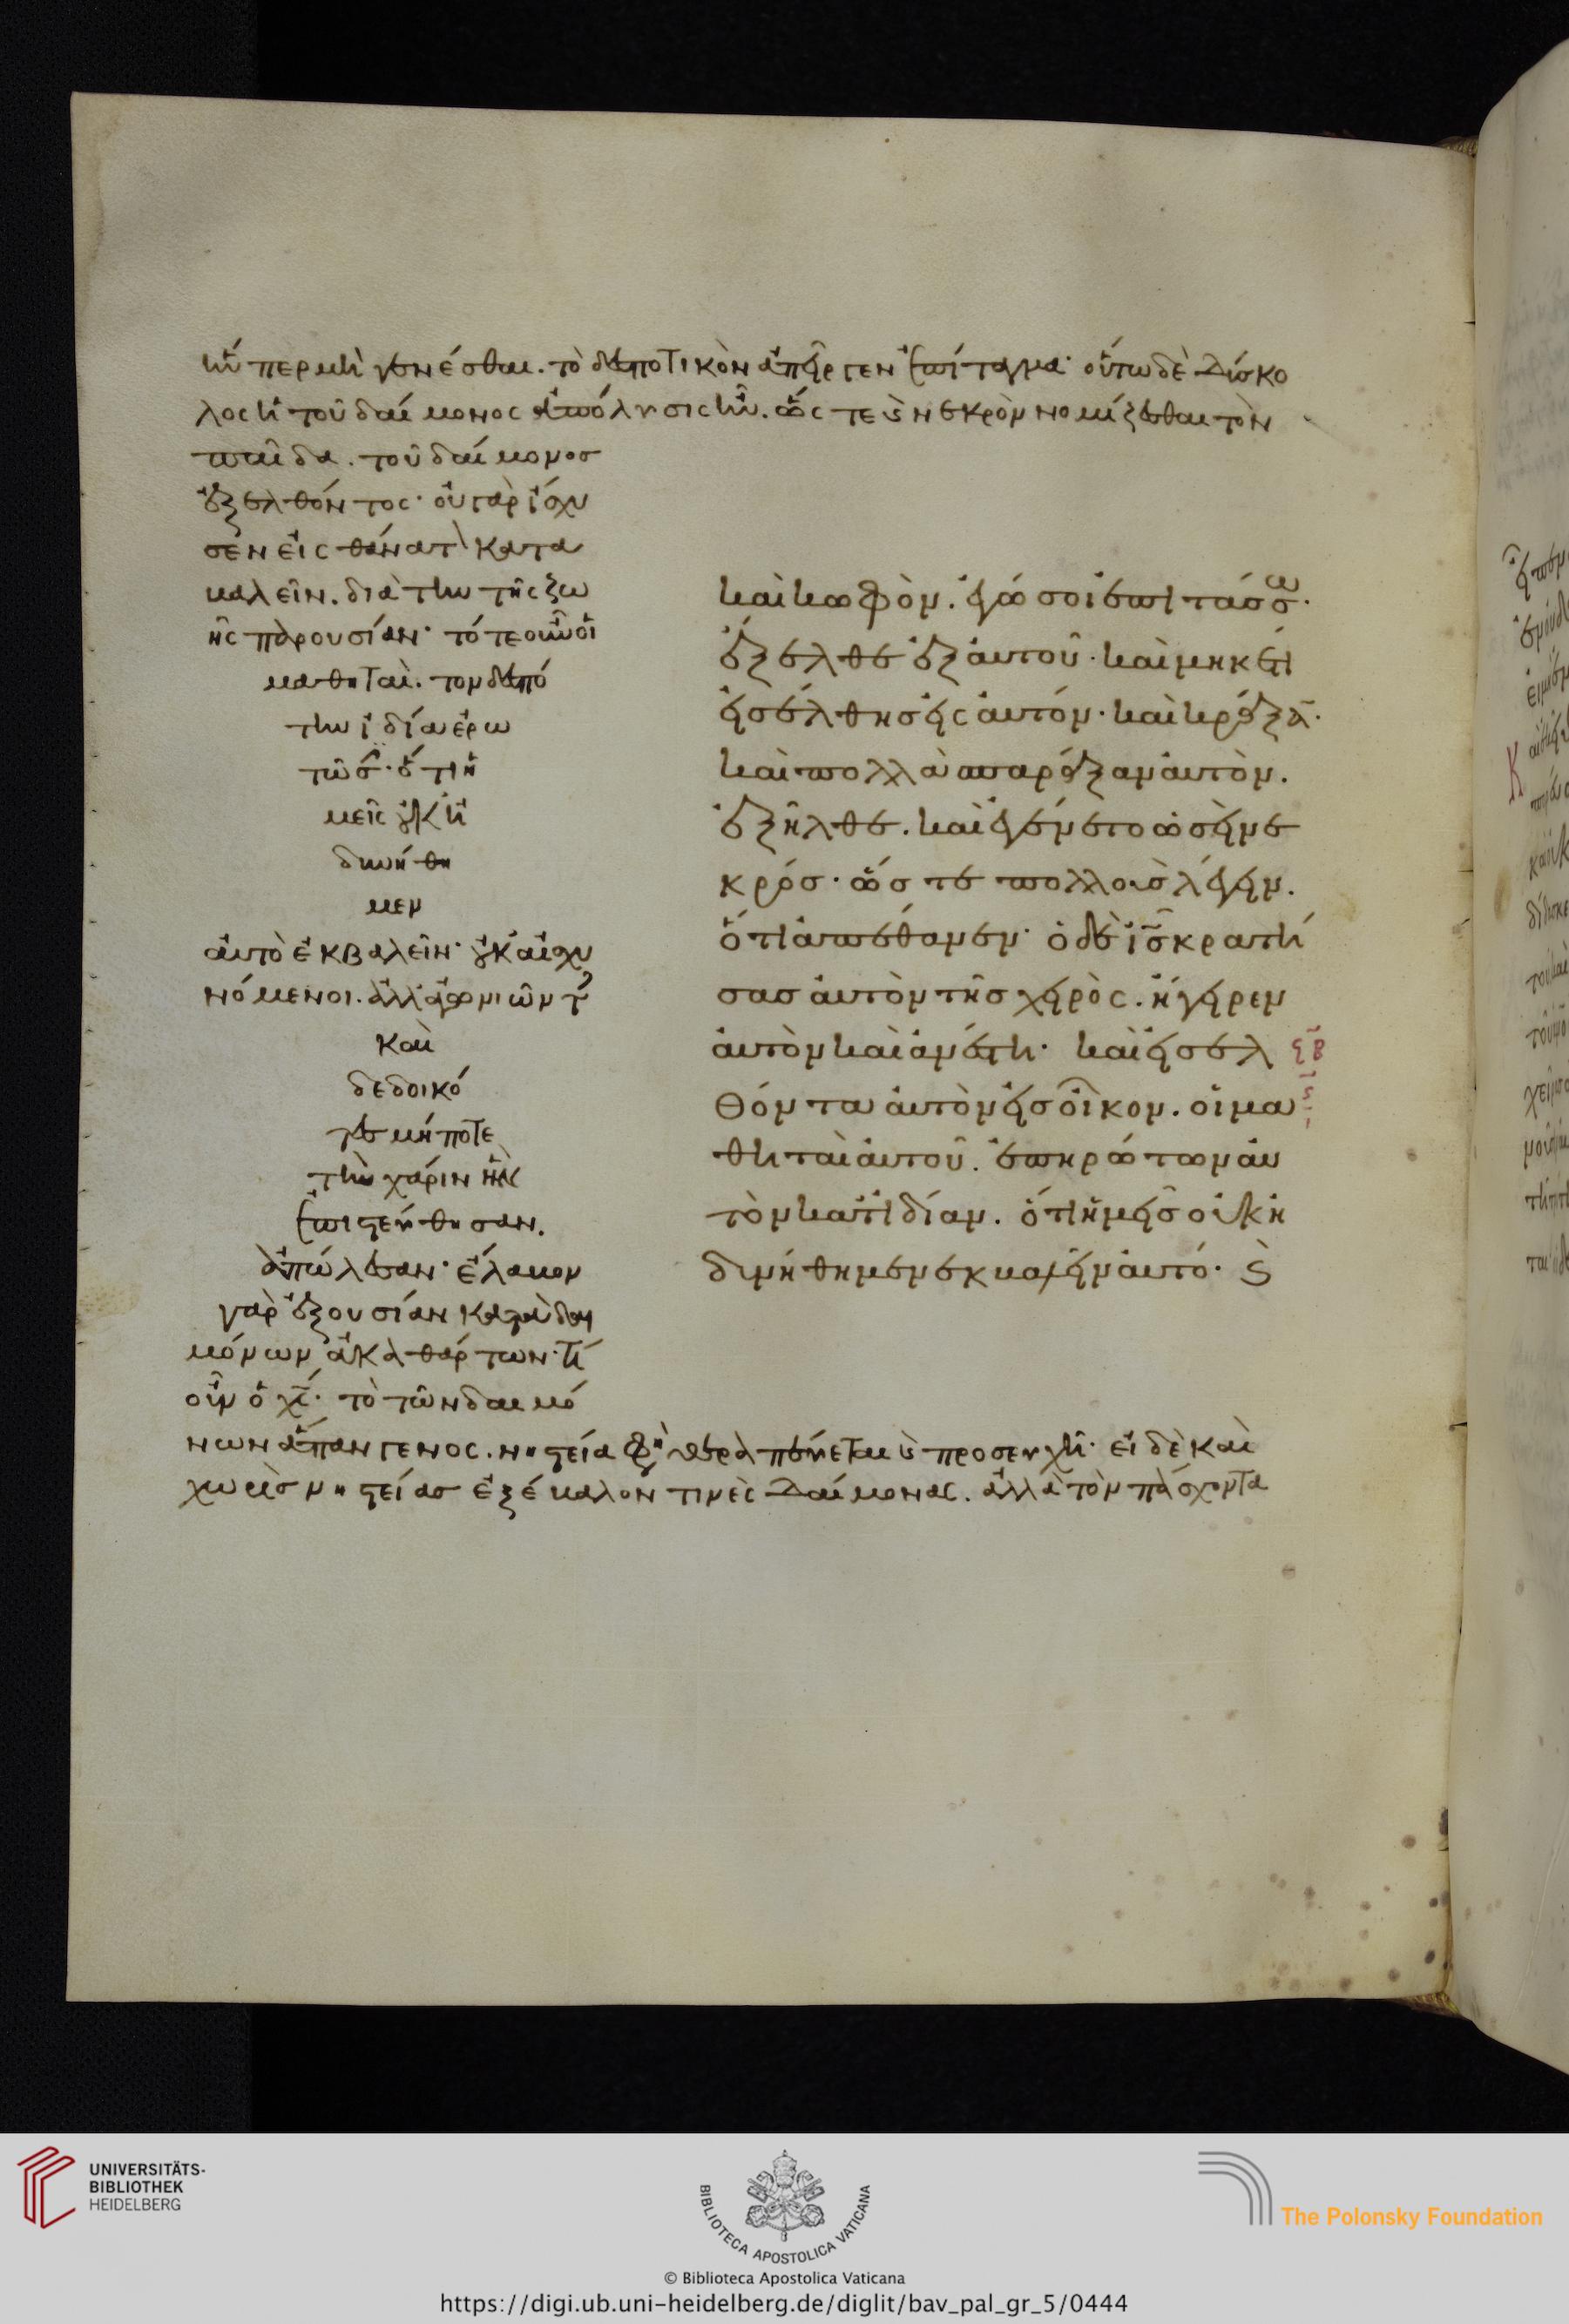 ἥνπερ μὴ γενέσθαι. τὸ δεσποτικὸν ἀπεῖργεν ἐπίταγμα· οὕτω δὲ δύσκο
λος ἡ τοῦ δαίμονος ἀπόλυσις ἦν. ὥς τε ὡς νεκρὸν νομίζεσθαι τὸν
παῖδα. τοῦ δαίμονος
ἐξελθόντος· οὐ γὰρ ἴσχυ
σεν εἰς θάνατ̀ κατα
βαλεῖν. διὰ τὴν τῆς ζω
ῆς παρουσίαν· τότε οὖν οἱ
μαθηταὶ. τὸν δεσπό
την ἰδία ἐρω
τῶσ· ὅτι ἡ
μεῖς οὐκ ἠ
δυνήθη
μεν
αὐτὸ ἐκβαλεῖν· οὐκ αἰσχυ
νόμενοι. ἀλλ' ἀγωνιῶντ
καὶ
δεδοικό
τες μήποτε
τὴν χάριν ἣν
ἐπιστεύθησαν.
ἀπώλεσαν· ἔλαβον
γὰρ ἐξουσίαν κατὰ δαι
μόνων ἀκαθάρτων· τί
οὖν ὁ χς· τὸ τῶν δαιμό
νων ἅπαν γένος. νηστεία φη θεραπεύεται καὶ προσευχῆ· εἰ δὲ καὶ
χωρὶς νηστείας ἐξέβαλόν τινες δαίμονας. ἀλλὰ τὸν πάσχοντα
καὶ κωφὸν. ἐγώ σοι ἐπιτάσσω·
ἔξελθε ἐξ αὐτοῦ· καὶ μηκέτι
εἰσέλθης εἰς αὐτόν· καὶ κράξα̅·
καὶ πολλὰ σπαράξαν αὐτὸν.
ἐξῆλθε. καὶ ἐγένετο ὡσεὶ νε
κρός· ὥστε πολλοὺς λέγειν.
ὅτι ἀπέθανεν· ὁ δὲ ις κρατή
σας αὐτὸν τῆς χειρὸς. ἤγειρεν
αὐτὸν καὶ ἀνέστη· καὶ εἰσελ
θόντα αὐτὸν εἰς οἶκον. οἱ μα
θηταὶ αὐτοῦ. ἐπηρώτων αὐ
τὸν κατιδίαν. ὅτι ἡμεῖς οὐκ ἠ
δυνήθημεν ἐκβαλεῖν αὐτό· καὶ
ϙβ
UNIVERSITÄTS-
BIBLIOTHEK
HEIDELBERG
BIBLIOTECA APOSTOLICA VATICANA
The Polonsky Foundation
© Biblioteca Apostolica Vaticana
https://digi.ub.uni-heidelberg.de/diglit/bav_pal_gr_5/0444